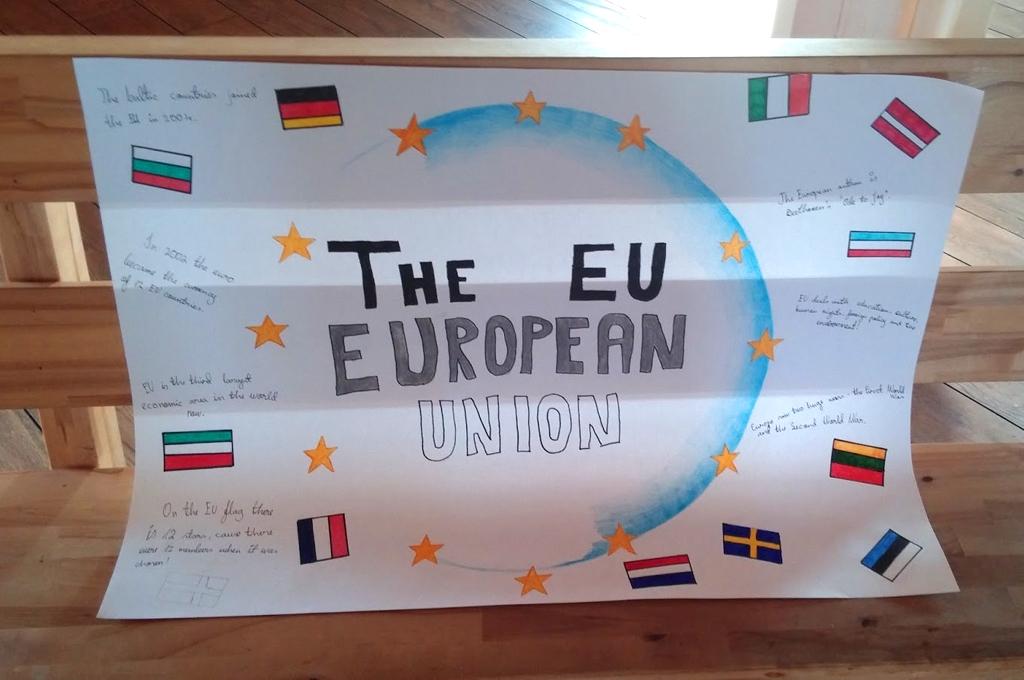 The baltic countries joined
the EU in 2004.
In 2002 the euro
became the currency
of 12 EU countries.
EU is the third largest
economic area in the world
now.
On the EU flag there
is 12 stars, cause there
were 12 members when it was
chosen!
THE EU
EUROPEAN
UNION
The European anthem is
Beethoven's "Ode to Joy".
EU deals with education, culture,
human rights, foreign policy and the
environment!
Europe two huge wars - the First World
War
and the Second World War.